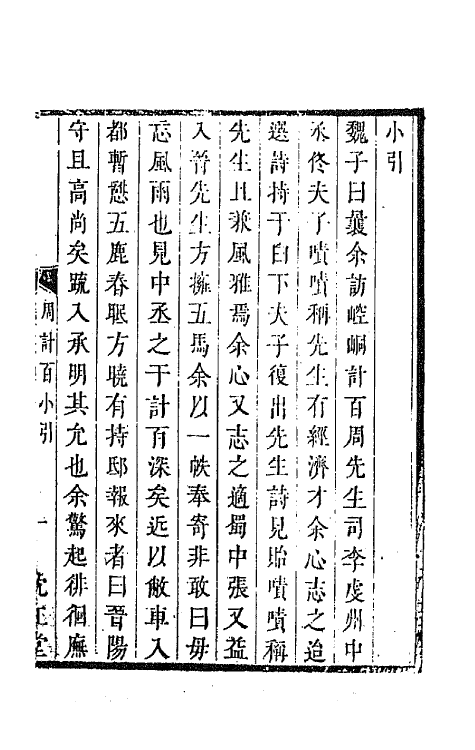 小引
魏子曰曩余訪崆峒計百周先生司李虔州中
丞佟夫子嘖嘖稱先生有經濟才余心志之迨
選詩持于白下夫子復出先生詩見貽嘖嘖稱
先生且兼風雅焉余心又志之適蜀中張又益
入晉先生方擁五馬余以一帙奉寄非敢曰毋
忘風雨也見中丞之于計百深矣近以敝車入
都暫憇五鹿春眠方曉有持邸報來者曰晉陽
守且高尚矣疏入承明其允也余驚起徘徊廡
周計百小引
一
堂